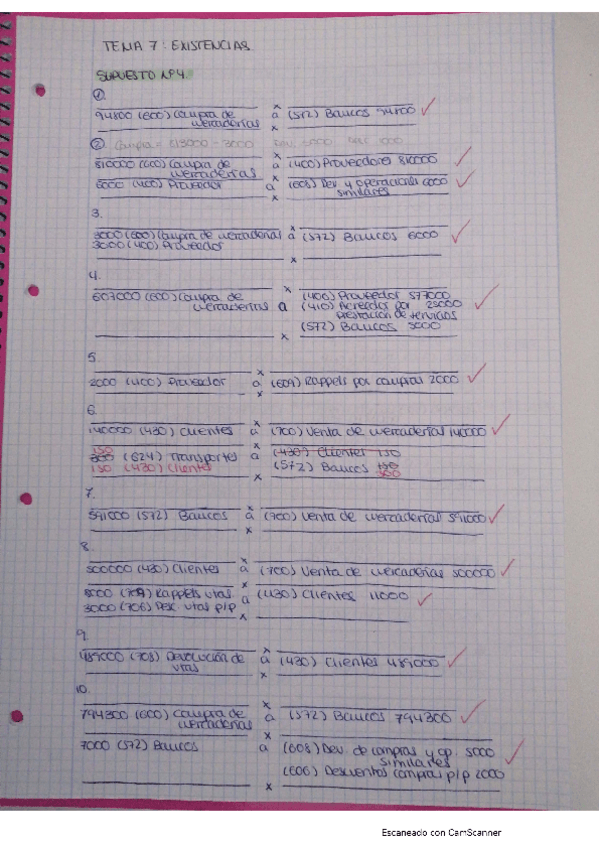 TEMA 7: EXISTENCIAS
SUPUESTO Nº4.
1.
x
94800 (600) Compra de mercaderías a (572) Bancos 94800
x
2. Compra =
x
810000 (600) Compra de mercaderías a (400) Proveedores 810000
x
6000 (400) Proveedor a (608) Dev y operaciones similares 6000
x
3.
x
3000 (600) Compra de mercaderías a (572) Bancos 6000
3000 (400) Proveedor
x
4.
x
607000 (600) Compra de mercaderías a (400) Proveedor 577000
(410) Acreedor por prestación de servicios 25000
(572) Bancos 5000
x
5.
x
2000 (400) Proveedor a (609) Rappels por compras 2000
x
6.
x
140000 (430) Clientes a (700) Venta de mercaderías 140000
x
150
300 (624) Transportes a (430) Clientes 150
150 (430) Clientes (572) Bancos 150
300
x
7.
x
591000 (572) Bancos a (700) Venta de mercaderías 591000
x
8.
x
500000 (430) Clientes a (700) Venta de mercaderías 500000
x
8000 (709) Rappels vtas a (430) Clientes 11000
3000 (706) Desc. vtas p/p
x
9.
x
489000 (708) Devolución de vtas a (430) Clientes 489000
x
10.
x
794300 (600) Compra de mercaderías a (572) Bancos 794300
x
7000 (572) Bancos a (608) Dev. de compras y op. similares 5000
(606) Descuentos compras p/p 2000
x
Escaneado con CamScanner